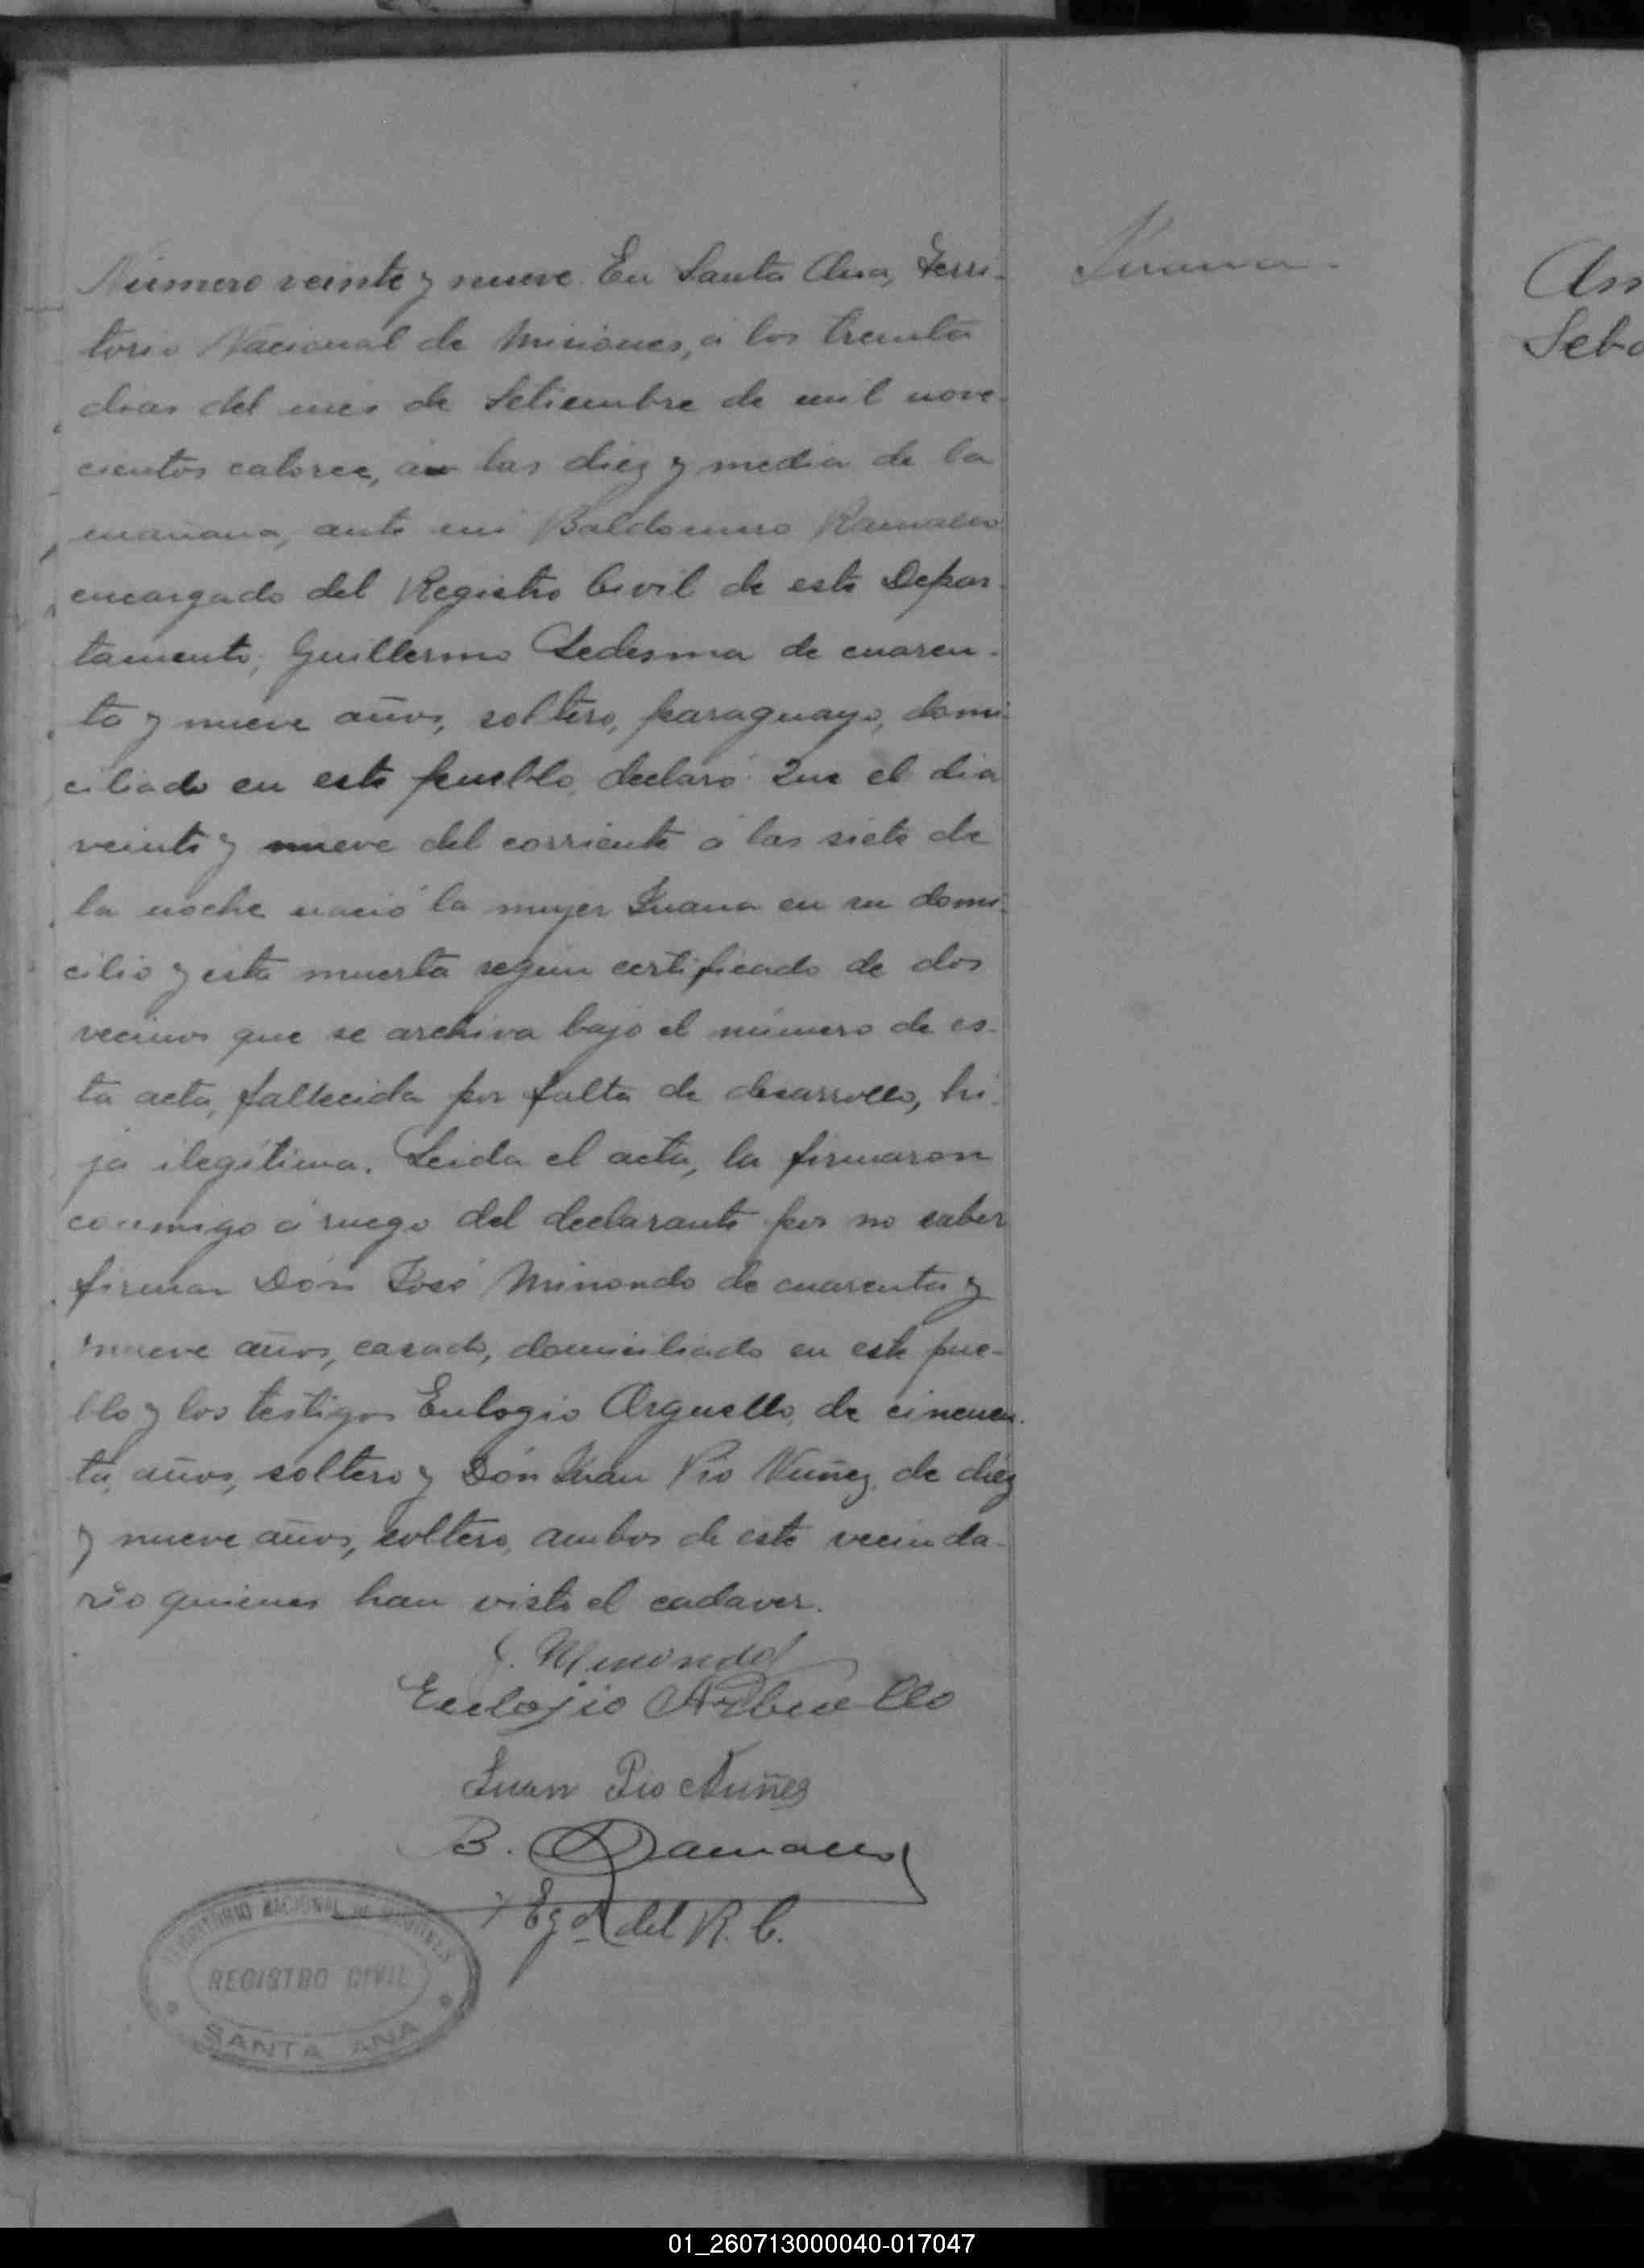 Número veinte y nueve. En Santa Ana, Terri-
torio Nacional de Misiones, á los treinta
dias del mes de Setiembre de mil nove-
cientos catorce, á las diez y media de la
mañana, ante mi Baldomero
encargado del Registro Civil de este Depar-
tamento, Guillermo Ledesma de cuaren-
ta y nueve años, soltero, paraguayo, domi-
ciliado en este pueblo, declaró: Que el dia
veinte y nueve del corriente á las siete de
la noche nació la mujer Juana en su domi-
cilio y está muerta segun certificado de dos
vecinos que se archiva bajo el número de es-
ta acta, fallecida por falta de desarrollo, hi-
ja ilegítima. Leida el acta, la firmaron
conmigo á ruego del declarante por no saber
firmar Dón José Minondo de cuarenta y
nueve años, casado, domiciliado en este pue-
blo y los testigos Eulogio Arguello, de cincuen-
ta, años, soltero y Dón Juan Pio Nuñez, de diez
y nueve años, soltero, ambos de este vecinda-
rio quienes han visto el cadaver.
J. Minondo
Eulojio
Juan Pio Nuñez
B.
Egdo del R. C.
TERRITORIO NACIONAL DE MISIONES
REGISTRO CIVIL
SANTA ANA
Juana.
An
Seba
01_260713000040-017047